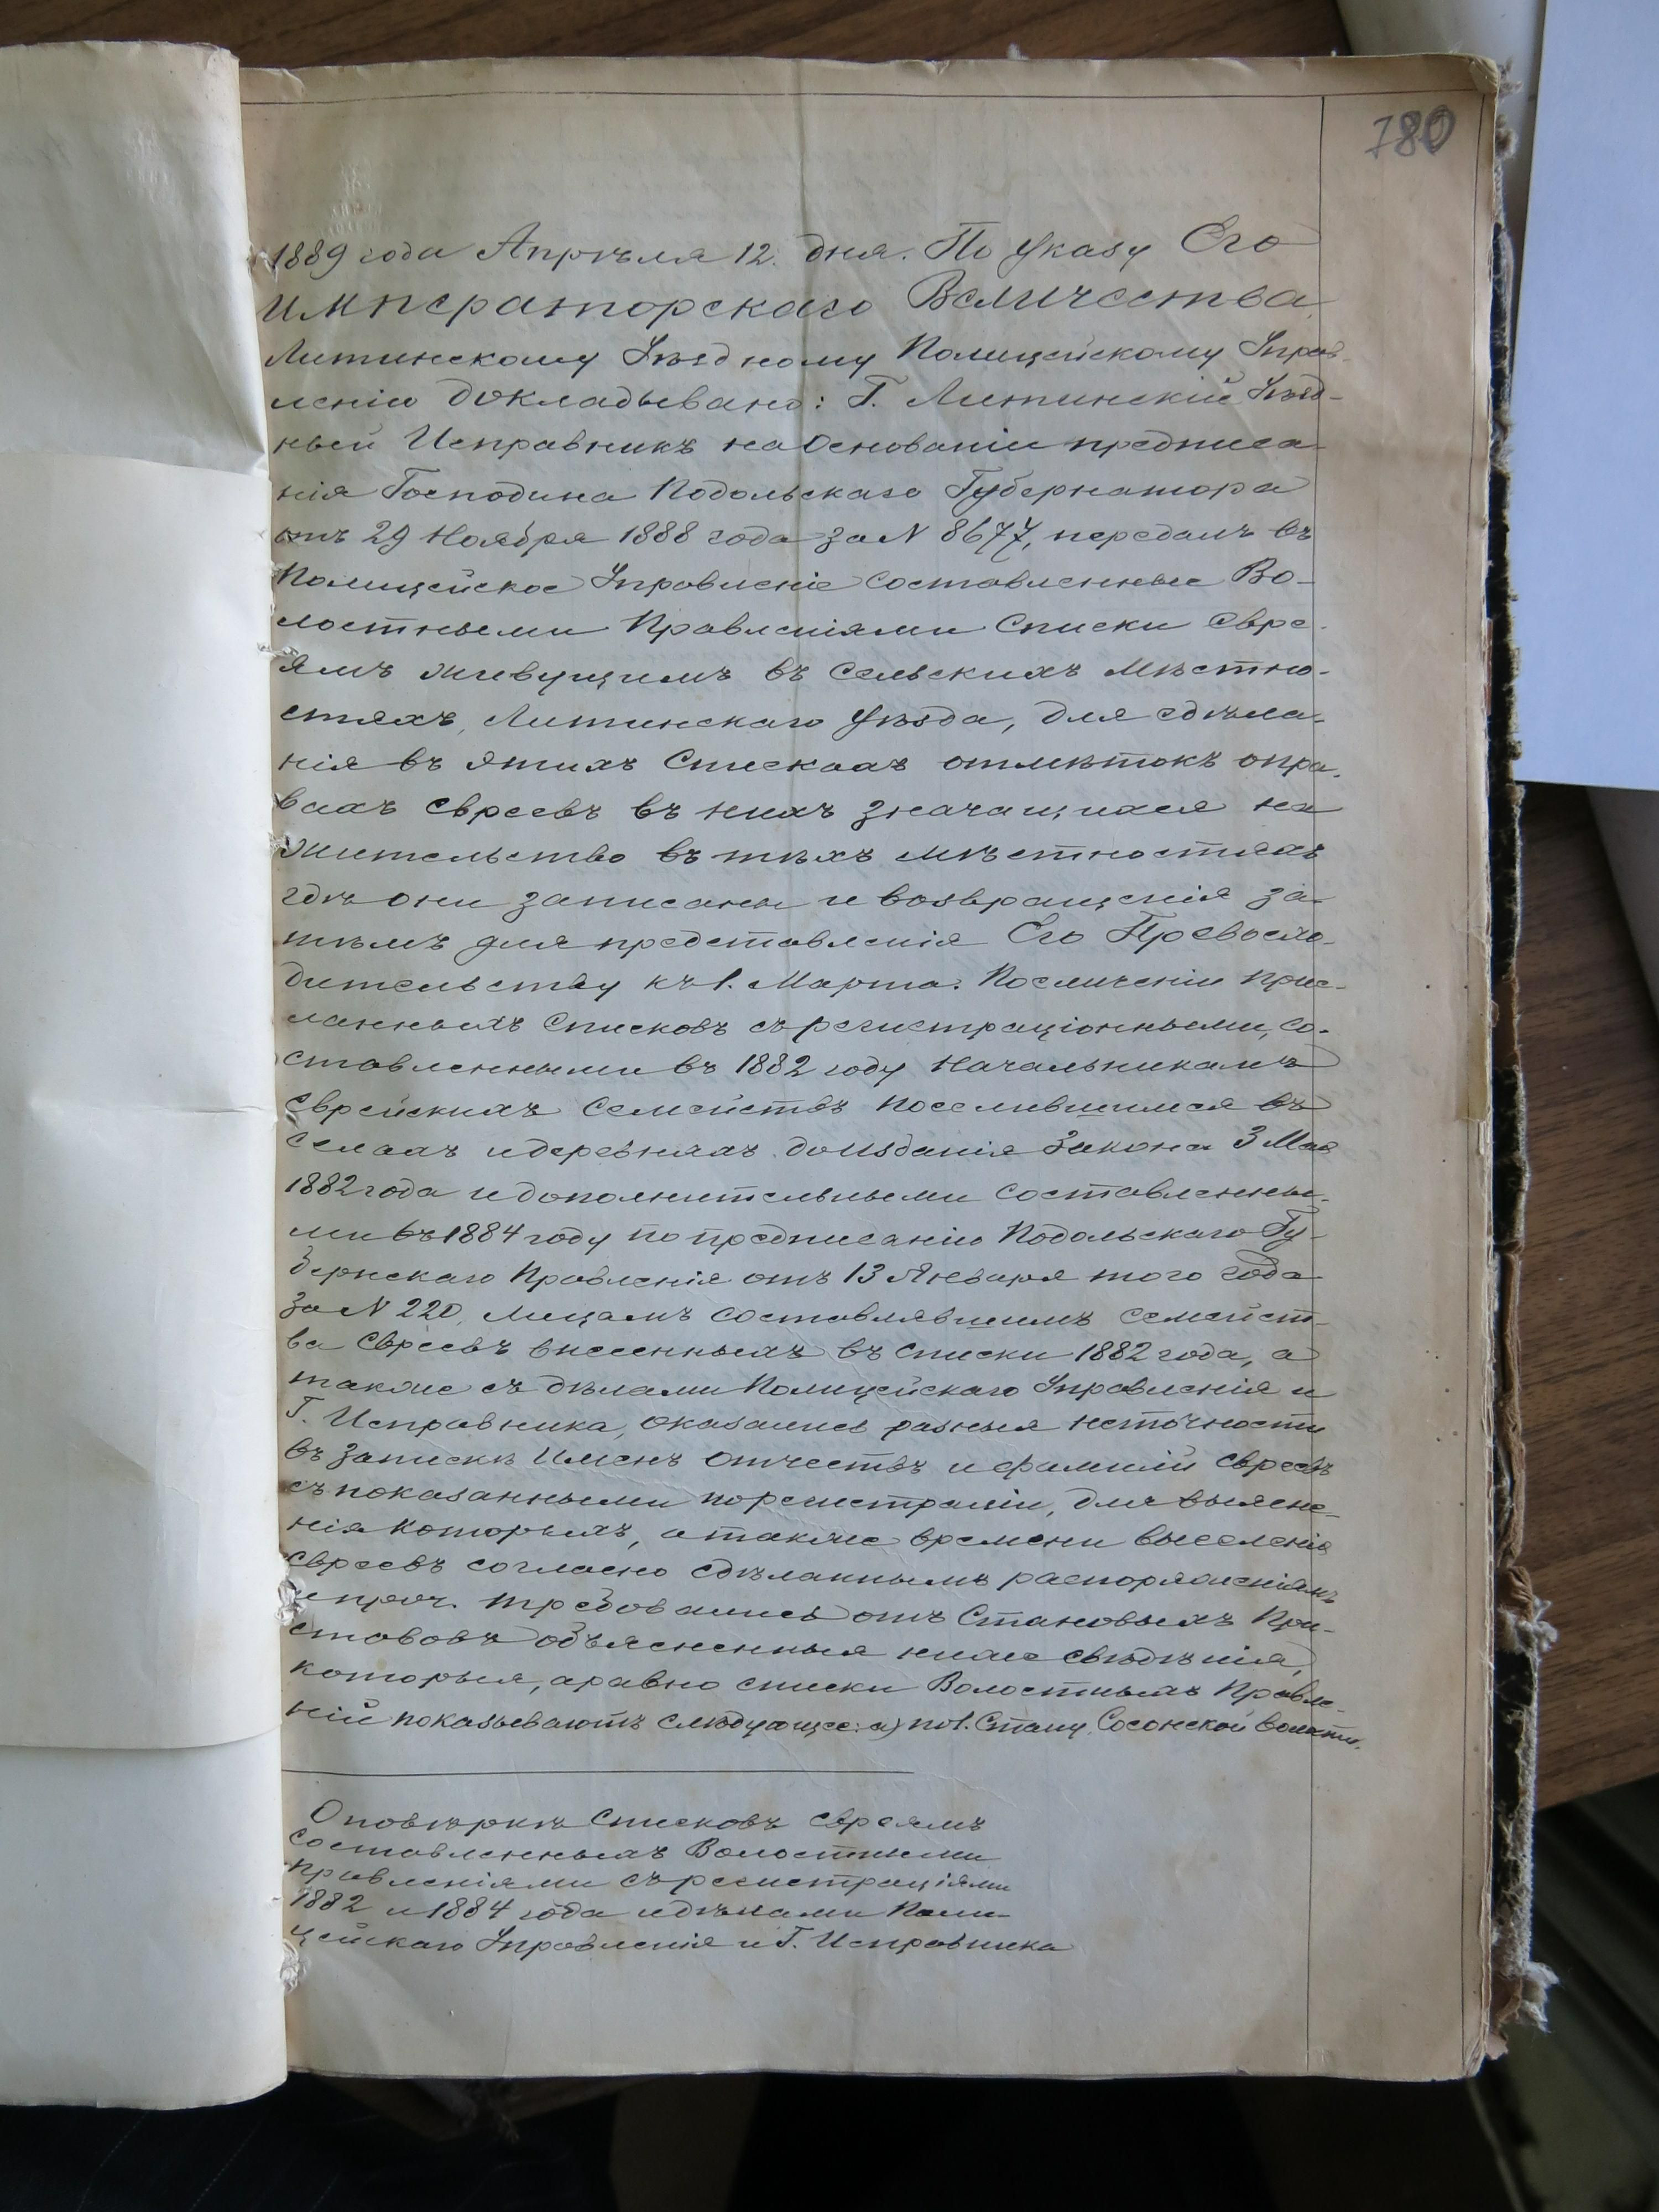 780
1889 года Апрѣля 12. дня. По указу Его
Императорскаго Величества
Литинскому Уѣздному Полицейскому Управ-
ленію докладывано: Г. Литинскій Уѣзд-
ный Исправникъ на основаніи предписа-
нія Господина Подольскаго Губернатора
отъ 29 Ноября 1888 года за N 8677, передалъ въ
Полицейское Управленіе составленные Во-
лостными Правленіями Списки Евре-
ямъ живущимъ въ сельскихъ мѣстно-
стяхъ, Литинскаго уѣзда, для сдѣла-
нія въ этихъ Спискахъ отмѣтокъ о пра-
вахъ евреевъ въ нихъ значащихся на
жительство въ тѣхъ мѣстностяхъ
гдѣ они записаны и возвращенія за-
тѣмъ для представленія Его Превосхо-
дительству къ 1. Марта. По сличеніи прис-
ланныхъ списковъ съ регистраціонными, со-
ставленными въ 1882 году Начальникамъ
еврейскихъ семействъ поселившимся въ
селахъ и деревняхъ до изданія Закона 3 Мая
1882 года и дополнительными составленны-
ми въ 1884 году по предписанію Подольскаго Гу-
бернскаго Правленія отъ 13 Января того года
за N 220, лицамъ составлявшимъ семейст-
ва евреевъ внесенныхъ въ списки 1882 года, а
также съ дѣлами Полицейскаго Управленія и
Г. Исправника, оказались разныя неточности
въ запискѣ Именъ Отчествъ и фамилій евреевъ
съ показанными по регистраціи, для выясне-
нія которыхъ, а также времени выселенія
евреевъ согласно сдѣланнымъ распоряженіямъ
и проч. требовались отъ Становыхъ При-
ставовъ объясненныя ниже свѣдѣнія,
которыя, а равно списки Волостныхъ Правле-
ній показываютъ слѣдующее: а) по 1. Стану. Сосонской волости.
О повѣркѣ Списковъ евреямъ
составленныхъ Волостными
правленіями съ регистраціями
1882 и 1884 года и дѣлами Поли-
цейскаго Управленія и Г. Исправника